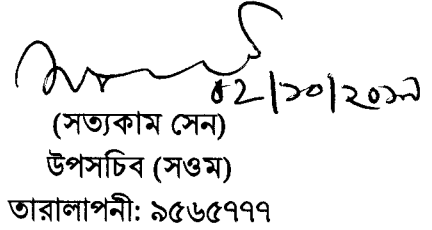 ০২/১০/২০১৭
(সত্যকাম সেন)
উপসচিব (সওম)
তারালাপনী: ৯৫৬৫৭৭৭